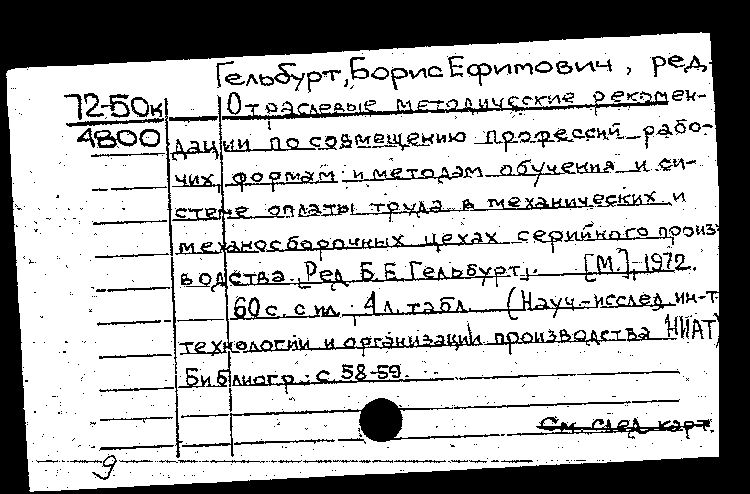 Гельбурт, Борис Ефимович, ред.
72-50к Отраслевые методические рекомен-
4800 дации по совмещению профессий рабо-
чих, формам и методам обучения и си-
стеме оплаты труда в механических и
механосборочных цехах серийного произ-
водства. [Ред. Б.Е. Гельбурт]. [М.], 1972.
60 с. с ил.; 4 л. табл. (Науч.-исслед. ин-т
технологии и организации производства НИАТ)
Библиогр.: с. 58-59.
См. след. карт.
9